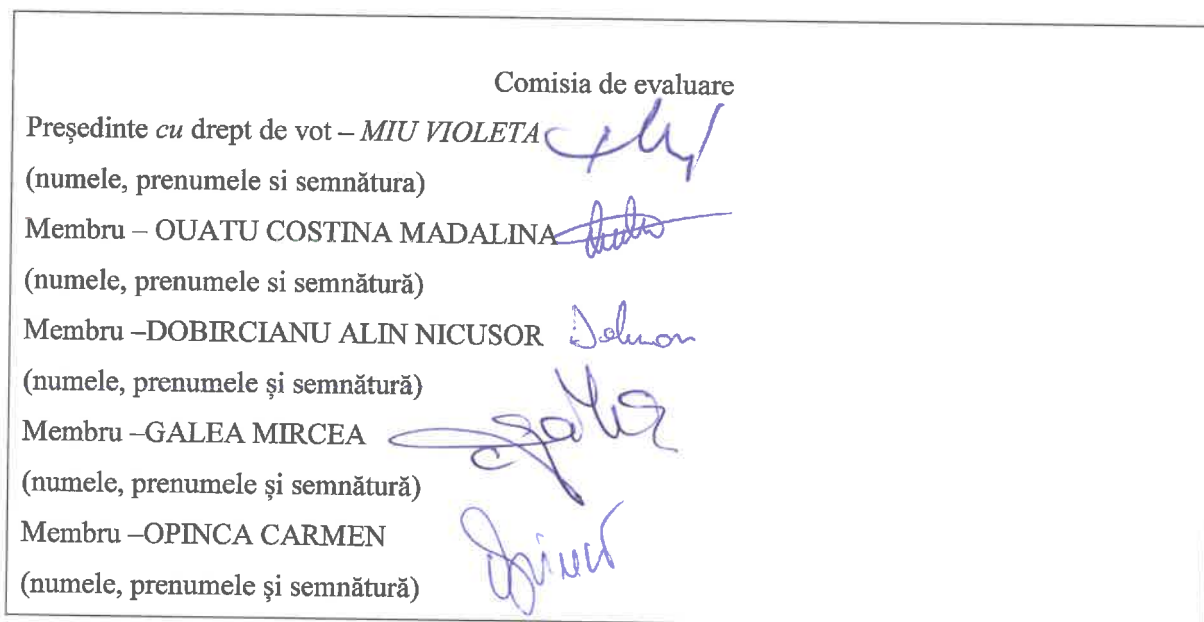 Comisia de evaluare
Președinte cu drept de vot – MIU VIOLETA
(numele, prenumele si semnătura)
Membru – OUATU COSTINA MADALINA
(numele, prenumele si semnătură)
Membru –DOBIRCIANU ALIN NICUSOR
(numele, prenumele și semnătură)
Membru –GALEA MIRCEA
(numele, prenumele și semnătură)
Membru –OPINCA CARMEN
(numele, prenumele și semnătură)